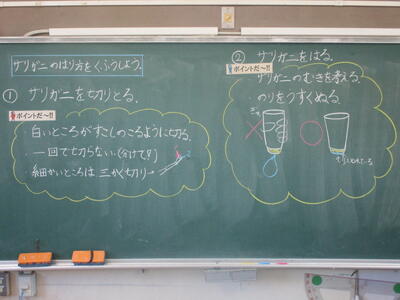 ザリガニのはり方をくふうしよう。
① ザリガニを切りとる。
ポイントだ～!!
・白いところがすこしのこるように切る。
・一回で切らない。(分けて?)
・細かいところは 三かく切り
② ザリガニをはる。
ポイントだ～!!
・ザリガニのむきを考える。
・のりをうすくぬる。